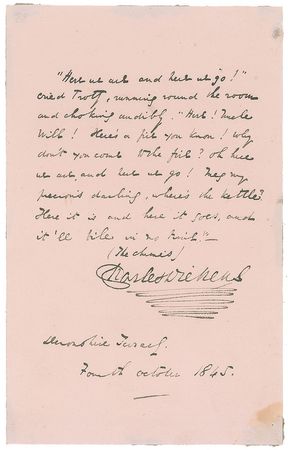 "Here we are and here we go!"
cried Trotty, running round the room
and choking audibly. "Here! Uncle
Will! Here's a fire you know! Why
don't you come to the fire? Oh here
we are and here we go! Meg my
precious darling, where's the kettle?
Here it is and here it goes, and
it'll bile in no time!"—
(The Chimes)
Charles Dickens
Devonshire Terrace.
Fourth October 1845.